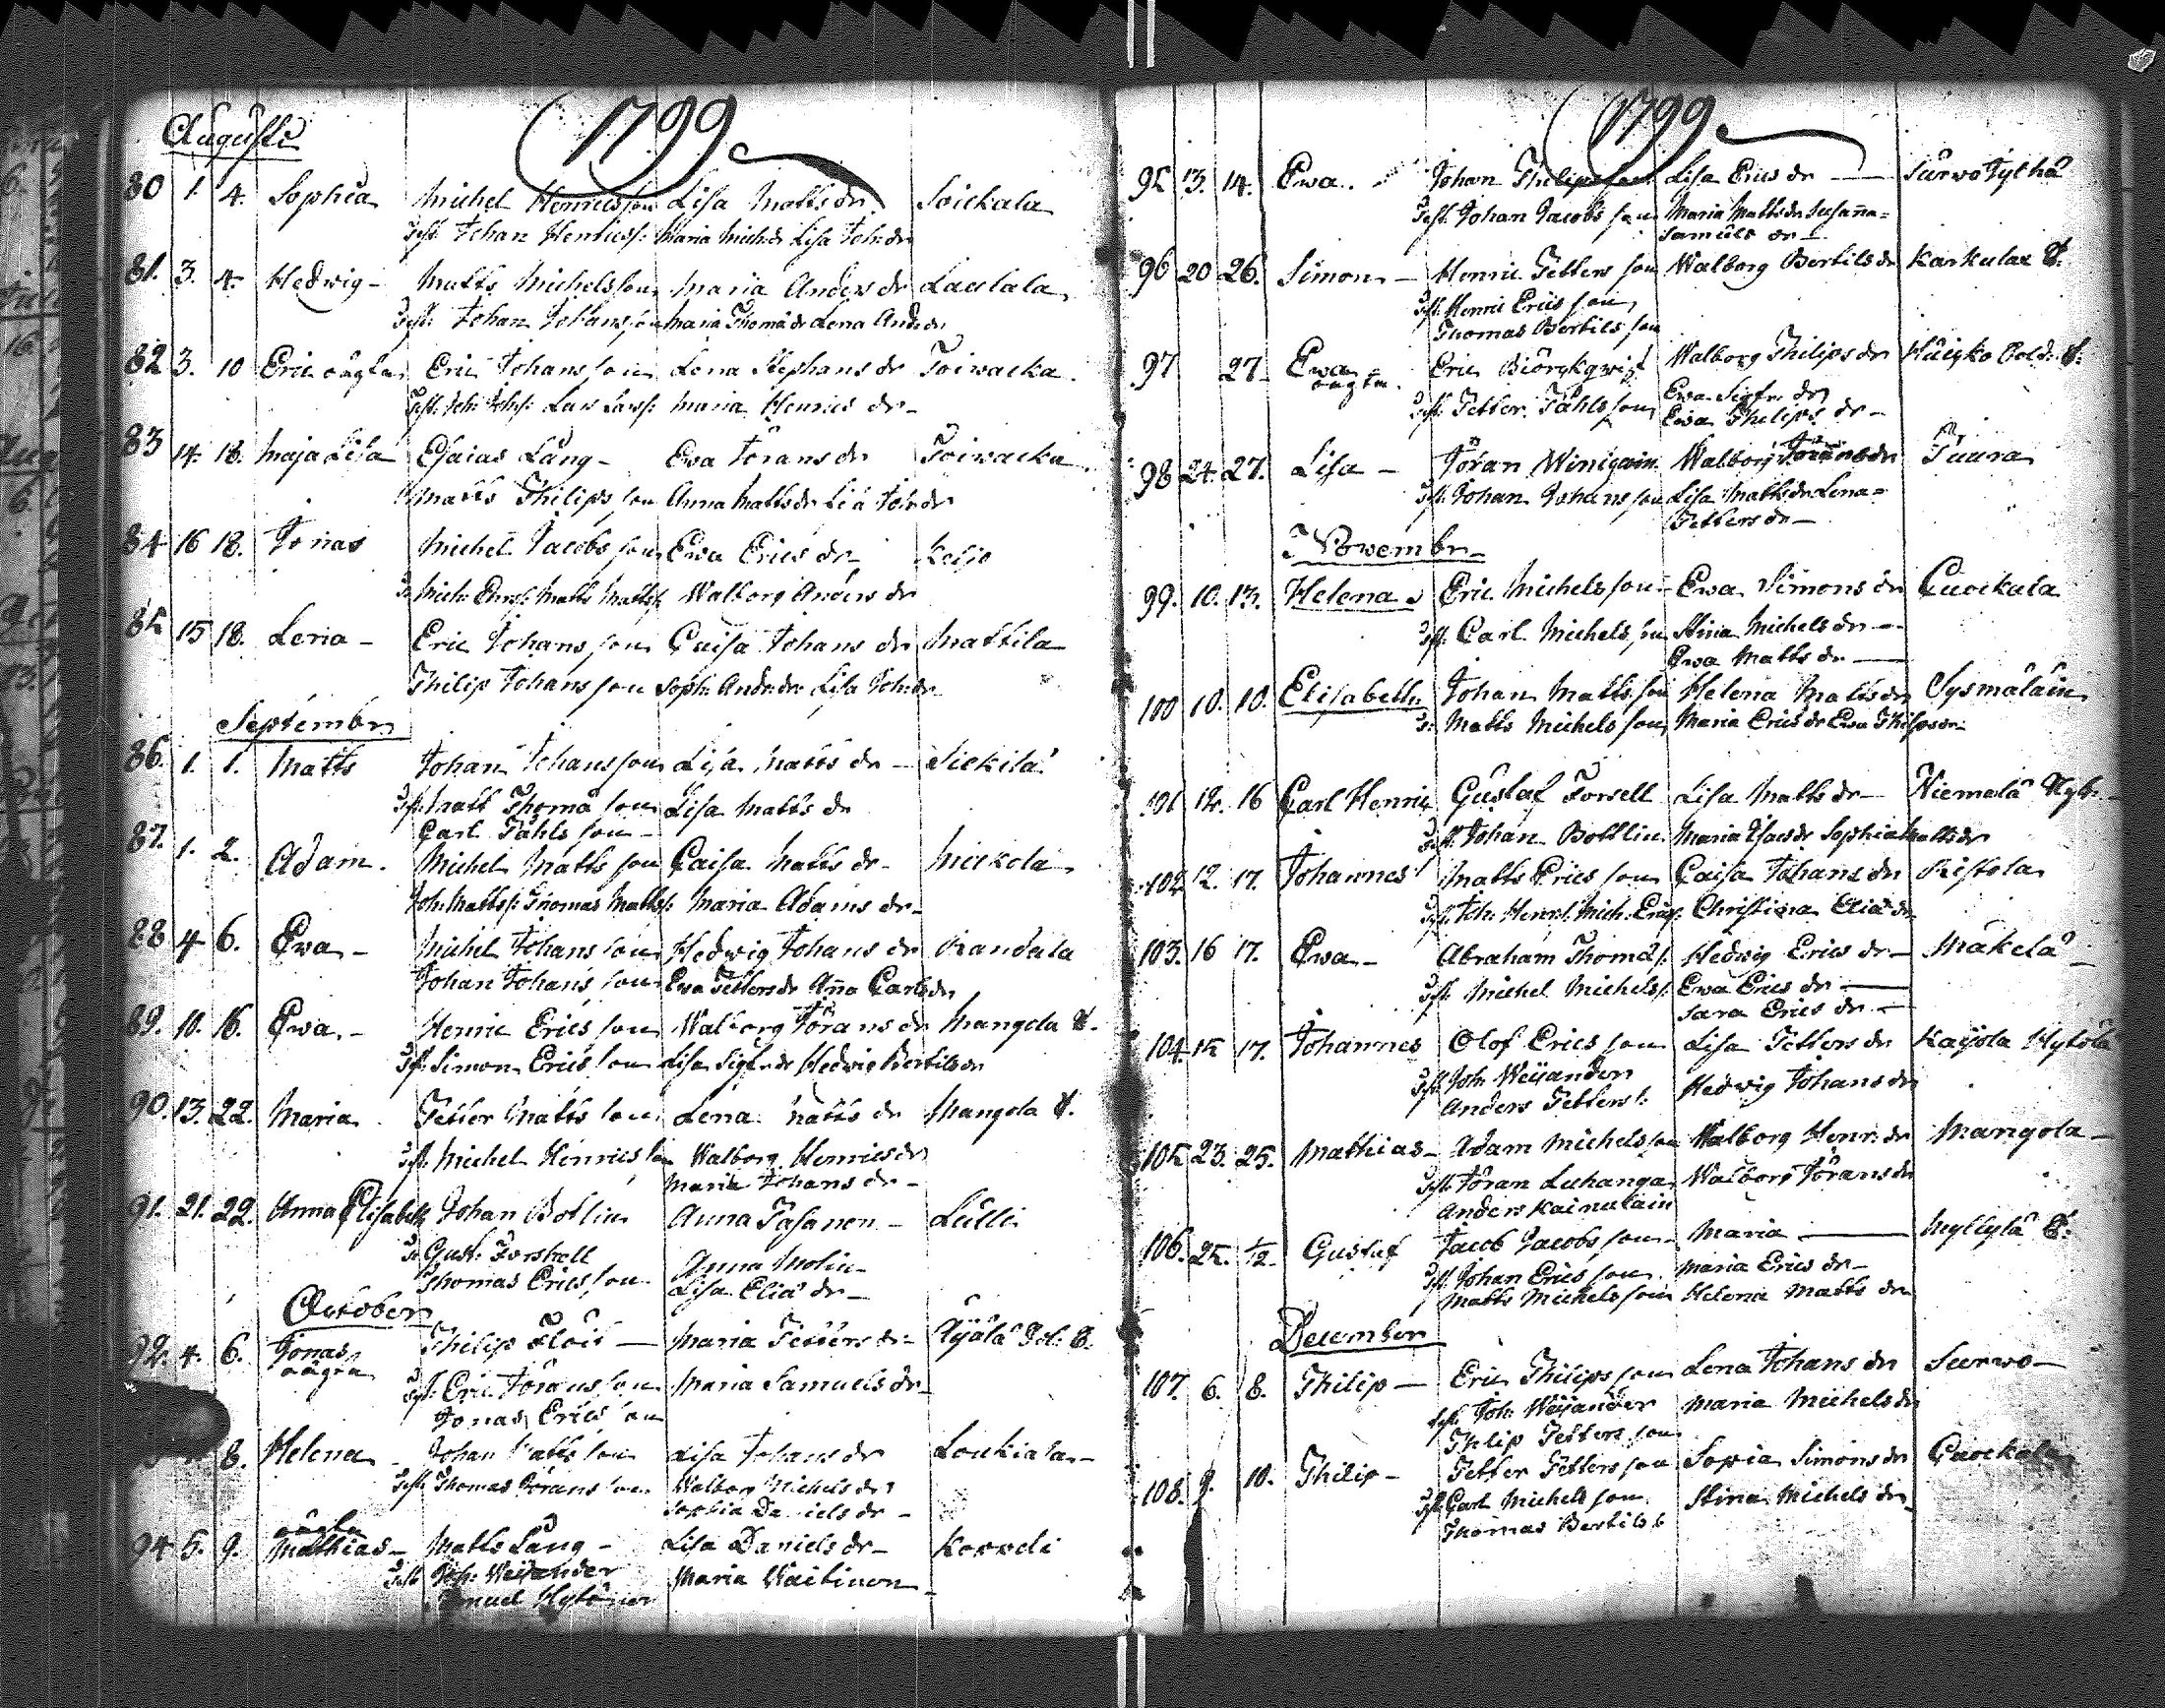 1799
Augusti
80 1. 4. Sophia Michel Henricsson Lisa Matts dr. Soickala
Test. Johan Henricss: Maria Mich:dr Lisa Joh:dr
81. 3. 4. Hedwig - Matts Michelsson Maria Anders dr Laulala
Test: Johan Johansson Maria Thomæ dr Lena And:dr
82 3. 10 Eric oägta Eric Johansson Lena Stephans dr Toiwacka.
Test: Joh: Johs: Lars Larss: Maria Henrics dr -
83 14. 18. Maja Lisa Esaias Lång - Ewa Jörans dr Toiwacka
Matts Philipsson Anna Matts dr Lisa Joh:dr
84 16 18. Jonas Michel Jacobsson Ewa Erics dr - Keljo
Mich: Erics: Matts Mattss: Walborg Anders dr
85 15 18. Lena - Eric Johansson Caisa Johans dr Mattila
Philip Johansson Soph: And:dr Lisa Joh:dr
September
86. 1. 1. Matts Johan Johansson Lisa Matts dr - Sickilä
Test: Matt Thomæson Lisa Matts dr
Carl Påhlsson -
87. 1. 2. Adam. Michel Mattsson Caisa Matts dr - Nickola
Joh: Mattss: Thomas Mattss: Maria Adams dr -
88 4 6. Ewa - Michel Johansson Hedwig Johans dr Randala
Johan Johansson Ewa Petters dr Anna Carls dr
89. 10. 16. Ewa - Henric Ericsson Walborg Jörans dr Mangola
Test: Simon Ericsson Lisa Sigfr:dr Hedwig Bertils dr
90. 13. 22. Maria Petter Mattsson Lena Matts dr Mangola
Test: Michel Henricsson Walborg Henrics dr
Maria Johans dr -
91. 21. 22. Anna Elisabeth Johan Botlin Anna Pasanen - Lulli
Gust: Forshell Anna Molin
Thomas Ericsson Lisa Eliæ dr -
October
92. 4. 6. Jonas Philip Floit - Maria Petters dr -
oägta
Test: Eric Jöransson Maria Samuels dr -
Jonas Ericsson
8. Helena - Johan Mattsson Lisa Johans dr Loukiala -
Test: Thomas Jöransson Walborg Michels dr
Sophia Daniels dr -
oägta
94 5. 9. Mathias - Matts Lång - Lisa Daniels dr - Korpeli
Test Joh: Weijander Maria Waitinen
Samuel Hytönen
1799
95 13. 14. Ewa. Johan Philipsson Lisa Erics dr - Surwo
Test. Johan Jacobsson Maria Matts dr Susanna
Samuels dr -
96 20 26. Simon - Henric Pettersson Walborg Bertils dr Karkulax
Test. Henric Ericsson
Thomas Bertilsson
97 27. Ewa Eric Biörckqwist Walborg Philips dr
oägta Ewa Sigfr: dr
Test. Petter Påhlsson Ewa Philips dr -
98 24. 27. Lisa - Jöran Minigain Walborg Jörans dr Puura
Test. Johan Johansson Lisa Matts dr Lena
Petters dr -
November
99. 10. 13. Helena Eric Michelsson Ewa Simons dr Cuockala
Test. Carl Michelsson Stina Michels dr -
Ewa Matts dr -
100 10. 10. Elisabeth Johan Mattsson Helena Matts dr Sysmäläin
Matts Michelsson Maria Erics dr Ewa Philips dr
101 12. 16 Carl Henric Gustaf Forsell Lisa Matts dr - Niemelä
Test. Johan Bottlin Maria Esaiædr Sophia Matts dr
102 12. 17. Johannes Matts Ericsson Caisa Johans dr Ristola
Test. Joh: Henrs: Mich: Erics: Christina Eliæ dr
103. 16 17. Ewa - Abraham Thomæs: Hedwig Erics dr - Mäkelä -
Test. Michel Michelss: Ewa Erics dr -
Sara Erics dr -
104. 15 17. Johannes Olof Ericsson Lisa Petters dr Kaijola Hytölä
Test. Joh: Weijander Hedwig Johans dr
Anders Petterss:
105 23. 25. Mathias - Adam Michelsson Walborg Henr: dr Mangola -
Test. Jöran Luhanga Walborg Jörans dr
Anders Kainulain
106. 25. 1/12. Gustaf Jacob Jacobsson Maria - Myllylä
Test. Johan Ericsson Maria Erics dr -
Matts Michelsson Helena Matts dr
December
107. 6. 8. Philip - Eric Philipsson Lena Johans dr Surwo -
Test. Joh: Weijander Maria Michels dr
Philip Pettersson
108. 9. 10. Philip - Petter Pettersson Sophia Simons dr Cuockala
Test. Carl Michelsson Stina Michels dr
Thomas Bertilss